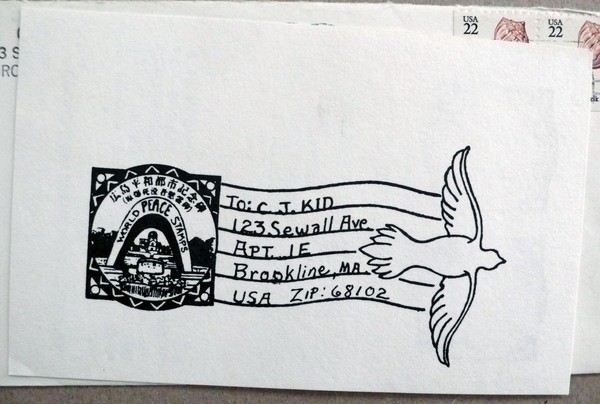 3 S
RO
USA
22
USA
22
広島平和都市記念碑
(原爆死没者慰霊碑)
WORLD PEACE STAMPS
TO: C. J. KID
123 Sewall Ave.
APT. 1E
Brookline, MA.
USA ZIP: 68102